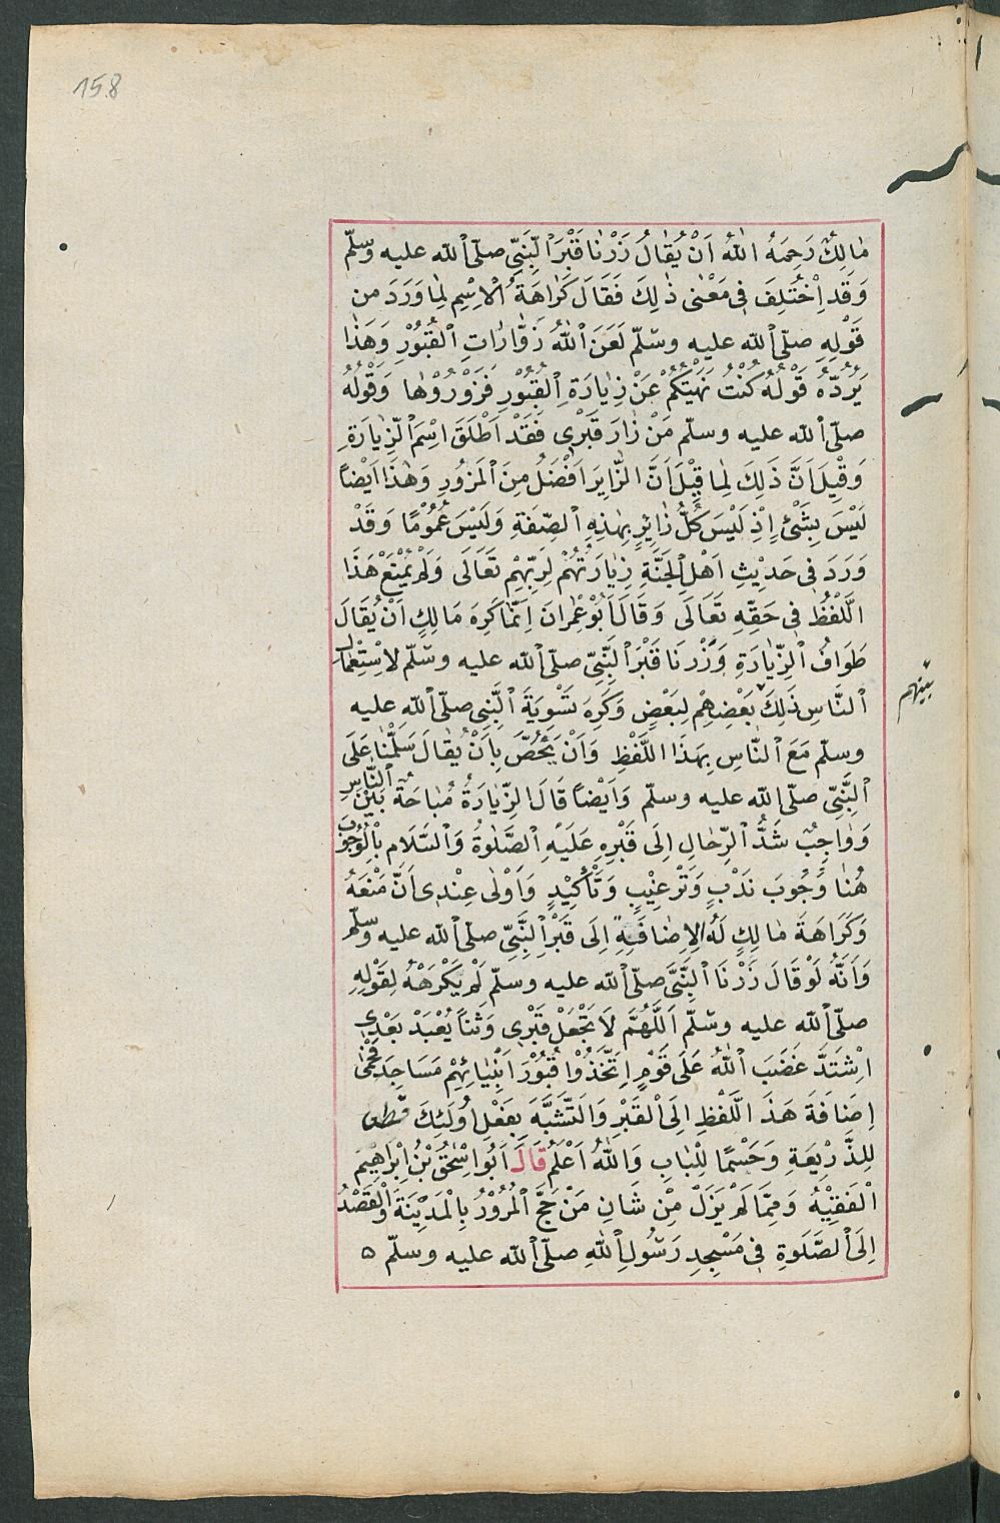 158
مَالِكٌ رَحِمَهُ اللهُ اَنْ يُقَالُ زُرْنَا قَبْرَ النَّبِيِّ صلّى الله عليه وسلّم
وَقَد اِخْتُلِفَ فِى مَعْنى ذٰلِكَ فَقَالَ كَرَاهَةُ الْاِسْمِ لِمَا وَرَدَ من
قَوْلِهِ صلّى الله عليه وسلّم لَعَنَ اللهُ زَوَّارَاتِ الْقُبُوْرِ وَهَذَا
يَرُدُّهُ قَوْلُهُ كُنْتُ نَهَيْتُكُمْ عَنْ زِيَارَةِ الْقُبُوْرِ فَزُوْرُوْهَا وَقَوْلُهُ
صلّى الله عليه وسلّم مَنْ زَارَ قَبْرِى فَقَدْ اَطْلَقَ اسْمَ الزِّيَارَةِ
وَقِيْلَ اَنَّ ذَلِكَ لِمَا قِيْلَ اَنَّ الزَّايِرَ اَفْضَلُ مِنَ الْمَزُوْرِ وَهَذَا اَيْضًا
لَيْسَ بِشَىْءٍ اِذْ لَيْسَ كُلُّ زَائِرٍ بِهٰذِهِ الصِّفَةِ وَلَيْسَ عُمُوْمًا وَقَدْ
وَرَدَ فِى حَدِيْثِ اَهْلِ الْجَنَّةِ زِيَارَتُهُمْ لِرَبِّهِمْ تَعَالَى وَلَمْ يُمْنَعْ هَذَا
اللَّفْظُ فِى حَقِّهِ تَعَالَى وَقَالَ اَبُوْ عِمْرَانَ اِنَّمَا كَرِهَ مَالِكٍ اَنْ يُقَالَ
طَوَافُ الزِّيَارَةِ وَزُرْنَا قَبْرَ النَّبِيِّ صلّى الله عليه وسلّم لاِسْتِعْمَال
النَّاسِ ذَلِكَ بَعْضِهِمْ لِبَعْضٍ وَكَرِهَ تَسْوِيَةَ النَّبِى صلّى الله عليه
بينهم
وسلّم مَعَ النَّاسِ بِهَذَا اللَّفْظِ وَاَنْ يُخَصَّ بِاَنْ يُقَالَ سَلَّمْنَا عَلَى
النَّبِيِّ صلّى الله عليه وسلّم وَاَيْضًا قَالَ الزِّيَارَةُ مُبَاحَةٌ بَيْنَ النَّاسِ
وَوَاجِبٌ شَدُّ الرِّحَالِ اِلَى قَبْرِهِ عَلَيْهِ الصَّلوةُ وَالسَّلَام بِالْوُجُوْبَ
هُنَا وُجُوبَ نَدْبٍ وَتَرْغِيْبٍ وَتَأْكِيْدٍ وَاَوْلَى عِنْدِى اَنَّ مَنْعَهُ
وَكَرَاهَةَ مَالِكٍ لَهُ الاِضَافَةِ اِلَى قَبْرِ النَّبِيِّ صلّى الله عليه وسلّم
وَاَنَّهُ لَوْ قَالَ زُرْنَا النَّبِيَّ صلّى الله عليه وسلّم لَمْ يَكْرَهْهُ لِقَوْلِهِ
صلّى الله عليه وسلّم اَللّهُمَّ لَا تَجْعَلْ قَبْرِى وَثَنًا يُعْبَدْ بَعْدِى
اِشْتَدَّ غَضَبَ اللهُ عَلَى قَوْمٍ اِتَّخَذُوْا قُبُوْرَ اَنْبِيَائِهِمْ مَسَاجِدَ فَحَمٰى
اِضَافَةَ هَذَ اللَّفْظِ اِلَى الْقَبْرِ وَالتَّشَبُّهَ بِفَعْلِ اُولَئِكَ قطعا
لِلذَّرِيْعَةِ وَحَسْمًا لِلْبَابِ وَاللهُ اَعْلَمُ قَالَ اَبُوا اِسْحٰقُ بْنُ اِبْرَاهِيْمَ
الْفَقِيْهُ وَمِمَّا لَمْ يَزَلْ مِنْ شَانِ مَنْ حَجَّ الْمُرُوْرُ بِالْمَدِيْنَةِ وَالْقَصْدُ
اِلَى الصَّلَوةِ فِى مَسْجِدِ رَسُوْلِ اللهِ صلّى الله عليه وسلّم ه